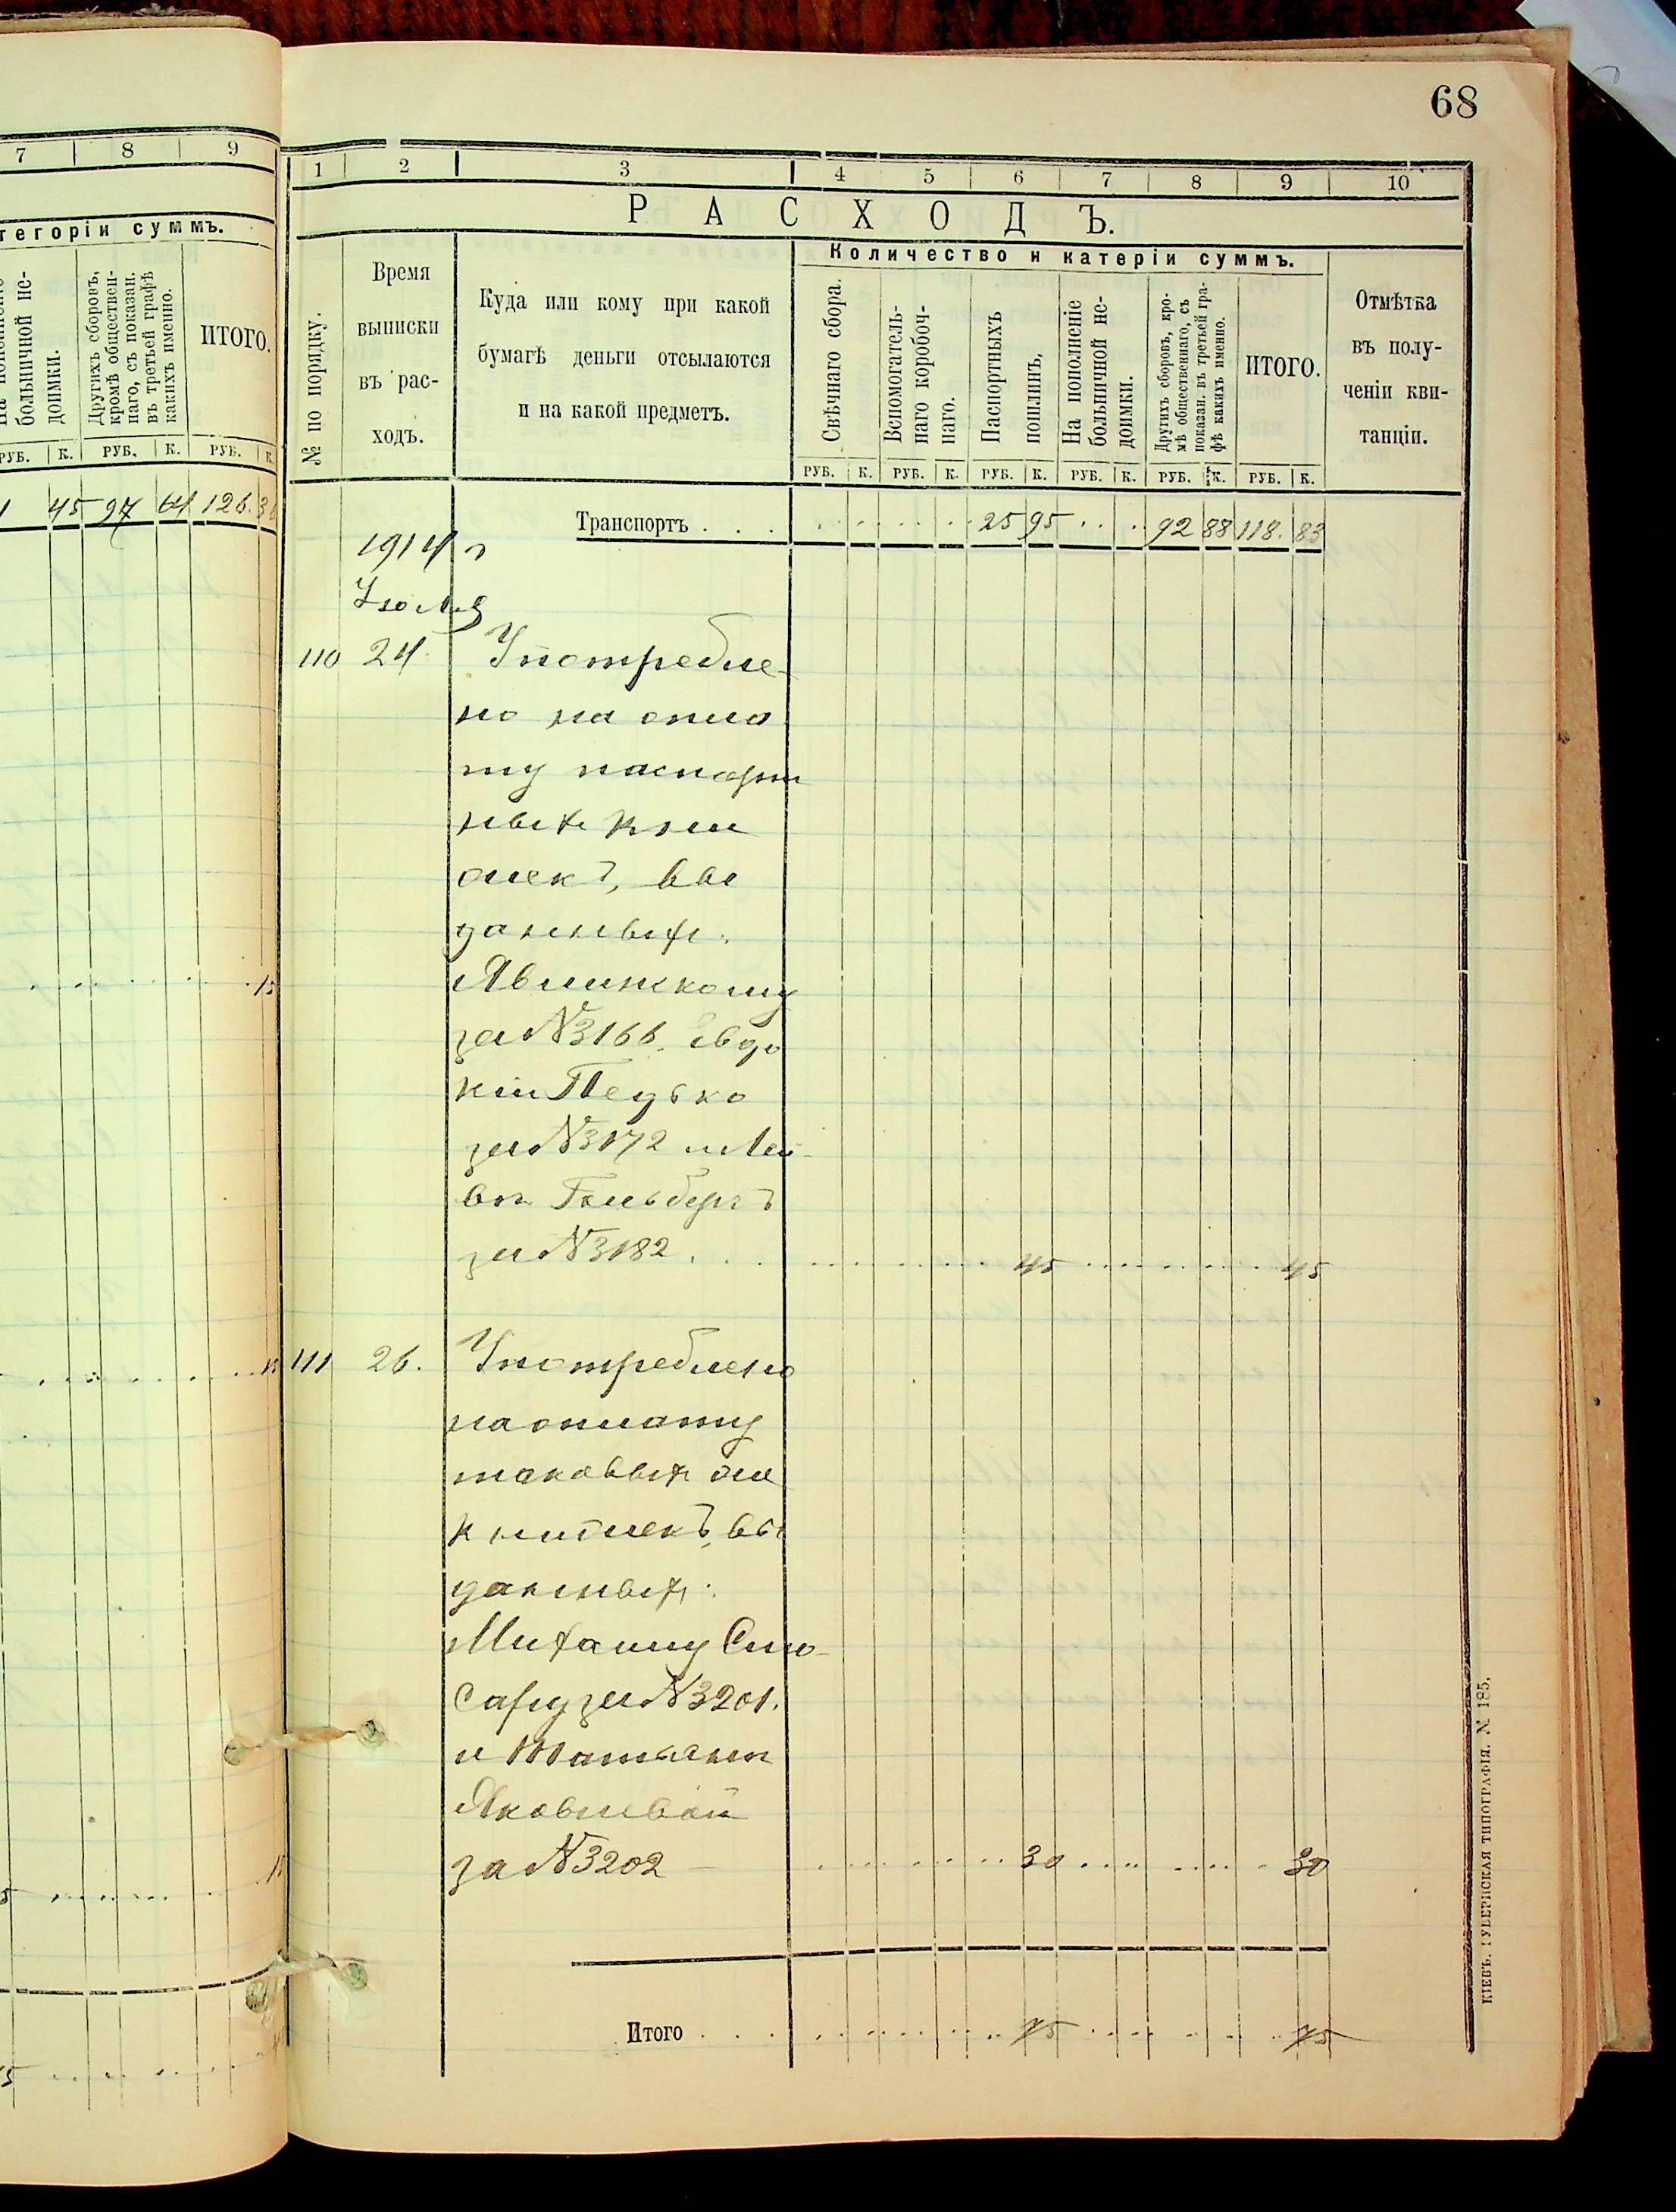 68
7 8 9
тегоріи суммъ.
больничной не-
доимки.
Другихъ сборовъ,
кромѣ обществен-
наго, съ показан.
въ третьей графѣ
какихъ именно.
ИТОГО.
РУБ. К. РУБ. К. РУБ. К.
45 97 64 126.
1 2 3 4 5 6 7 8 9 10
РАСХОДЪ.
Количество и катеріи суммъ.
№ по порядку.
Время
выписки
въ рас-
ходъ.
Куда или кому при какой
бумагѣ деньги отсылаются
и на какой предметъ.
Свѣчнаго сбора.
Вспомогатель-
наго коробоч-
наго.
Паспортныхъ
пошлинъ,
На пополненіе
больничной не-
доимки.
Другихъ сборовъ, кро-
мѣ общественнаго, съ
показан. въ третьей гра-
фѣ какихъ именно.
ИТОГО.
Отмѣтка
въ полу-
ченіи кви-
танціи.
РУБ. К. РУБ. К. РУБ. К. РУБ. К. РУБ. К. РУБ. К.
Транспортъ . . . 25 95 92 88 118. 83
1914 г
Іюля
110 24 Употребле-
но на опла
ту паспорт
ныхъ кни
жекъ, вы
данныхъ:
Явлинскому
за №3166, Евдо
кіи Педько
за №3172 и Лей-
вѣ Гольбергъ
за №3182. . . 45 45
111 26. Употреблено
на оплату
таковыхъ же
книжекъ, вы
данныхъ:
Михаилу Слю-
сарю за №3201.
и Татьянѣ
Яковлевой
за №3202 — 30 30
Итого . . . 75 75
КІЕВЪ. ГУБЕРНСКАЯ ТИПОГРАФІЯ. № 185.